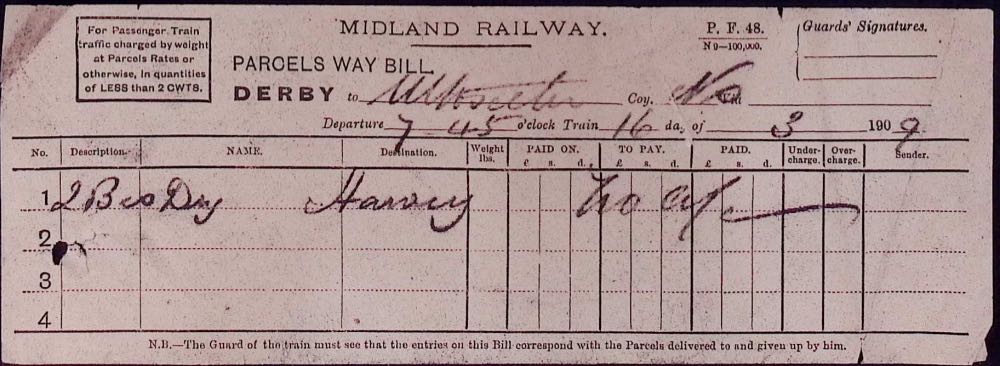 For Passenger Train
traffic charged by weight
at Parcels Rates or
otherwise, in quantities
of LESS than 2 CWTS.
MIDLAND RAILWAY.
P. F. 48.
N 9—100,000.
Guards' Signatures.
PARCELS WAY BILL
DERBY to Uttoxeter Coy. No
Departure 7 45 o'clock Train 16 day of 3 1909
No. Description. NAME. Destination. Weight lbs. PAID ON. £ s. d. TO PAY. £ s. d. PAID. £ s. d. Under-charge. Over-charge. Sender.
1 2 Bxs Harvey No
2
3
4
N.B.—The Guard of the train must see that the entries on this Bill correspond with the Parcels delivered to and given up by him.